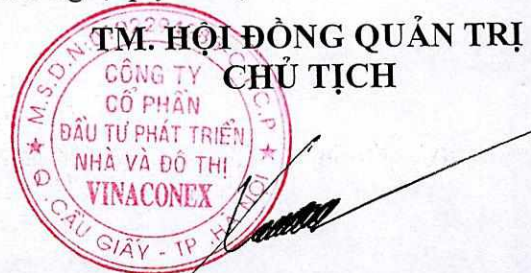 TM. HỘI ĐỒNG QUẢN TRỊ
CHỦ TỊCH
M.S.D.N:
C.P
CÔNG TY
CỔ PHẦN
ĐẦU TƯ PHÁT TRIỂN
NHÀ VÀ ĐÔ THỊ
VINACONEX
Q.CẦU GIẤY - TP. HÀ NỘI